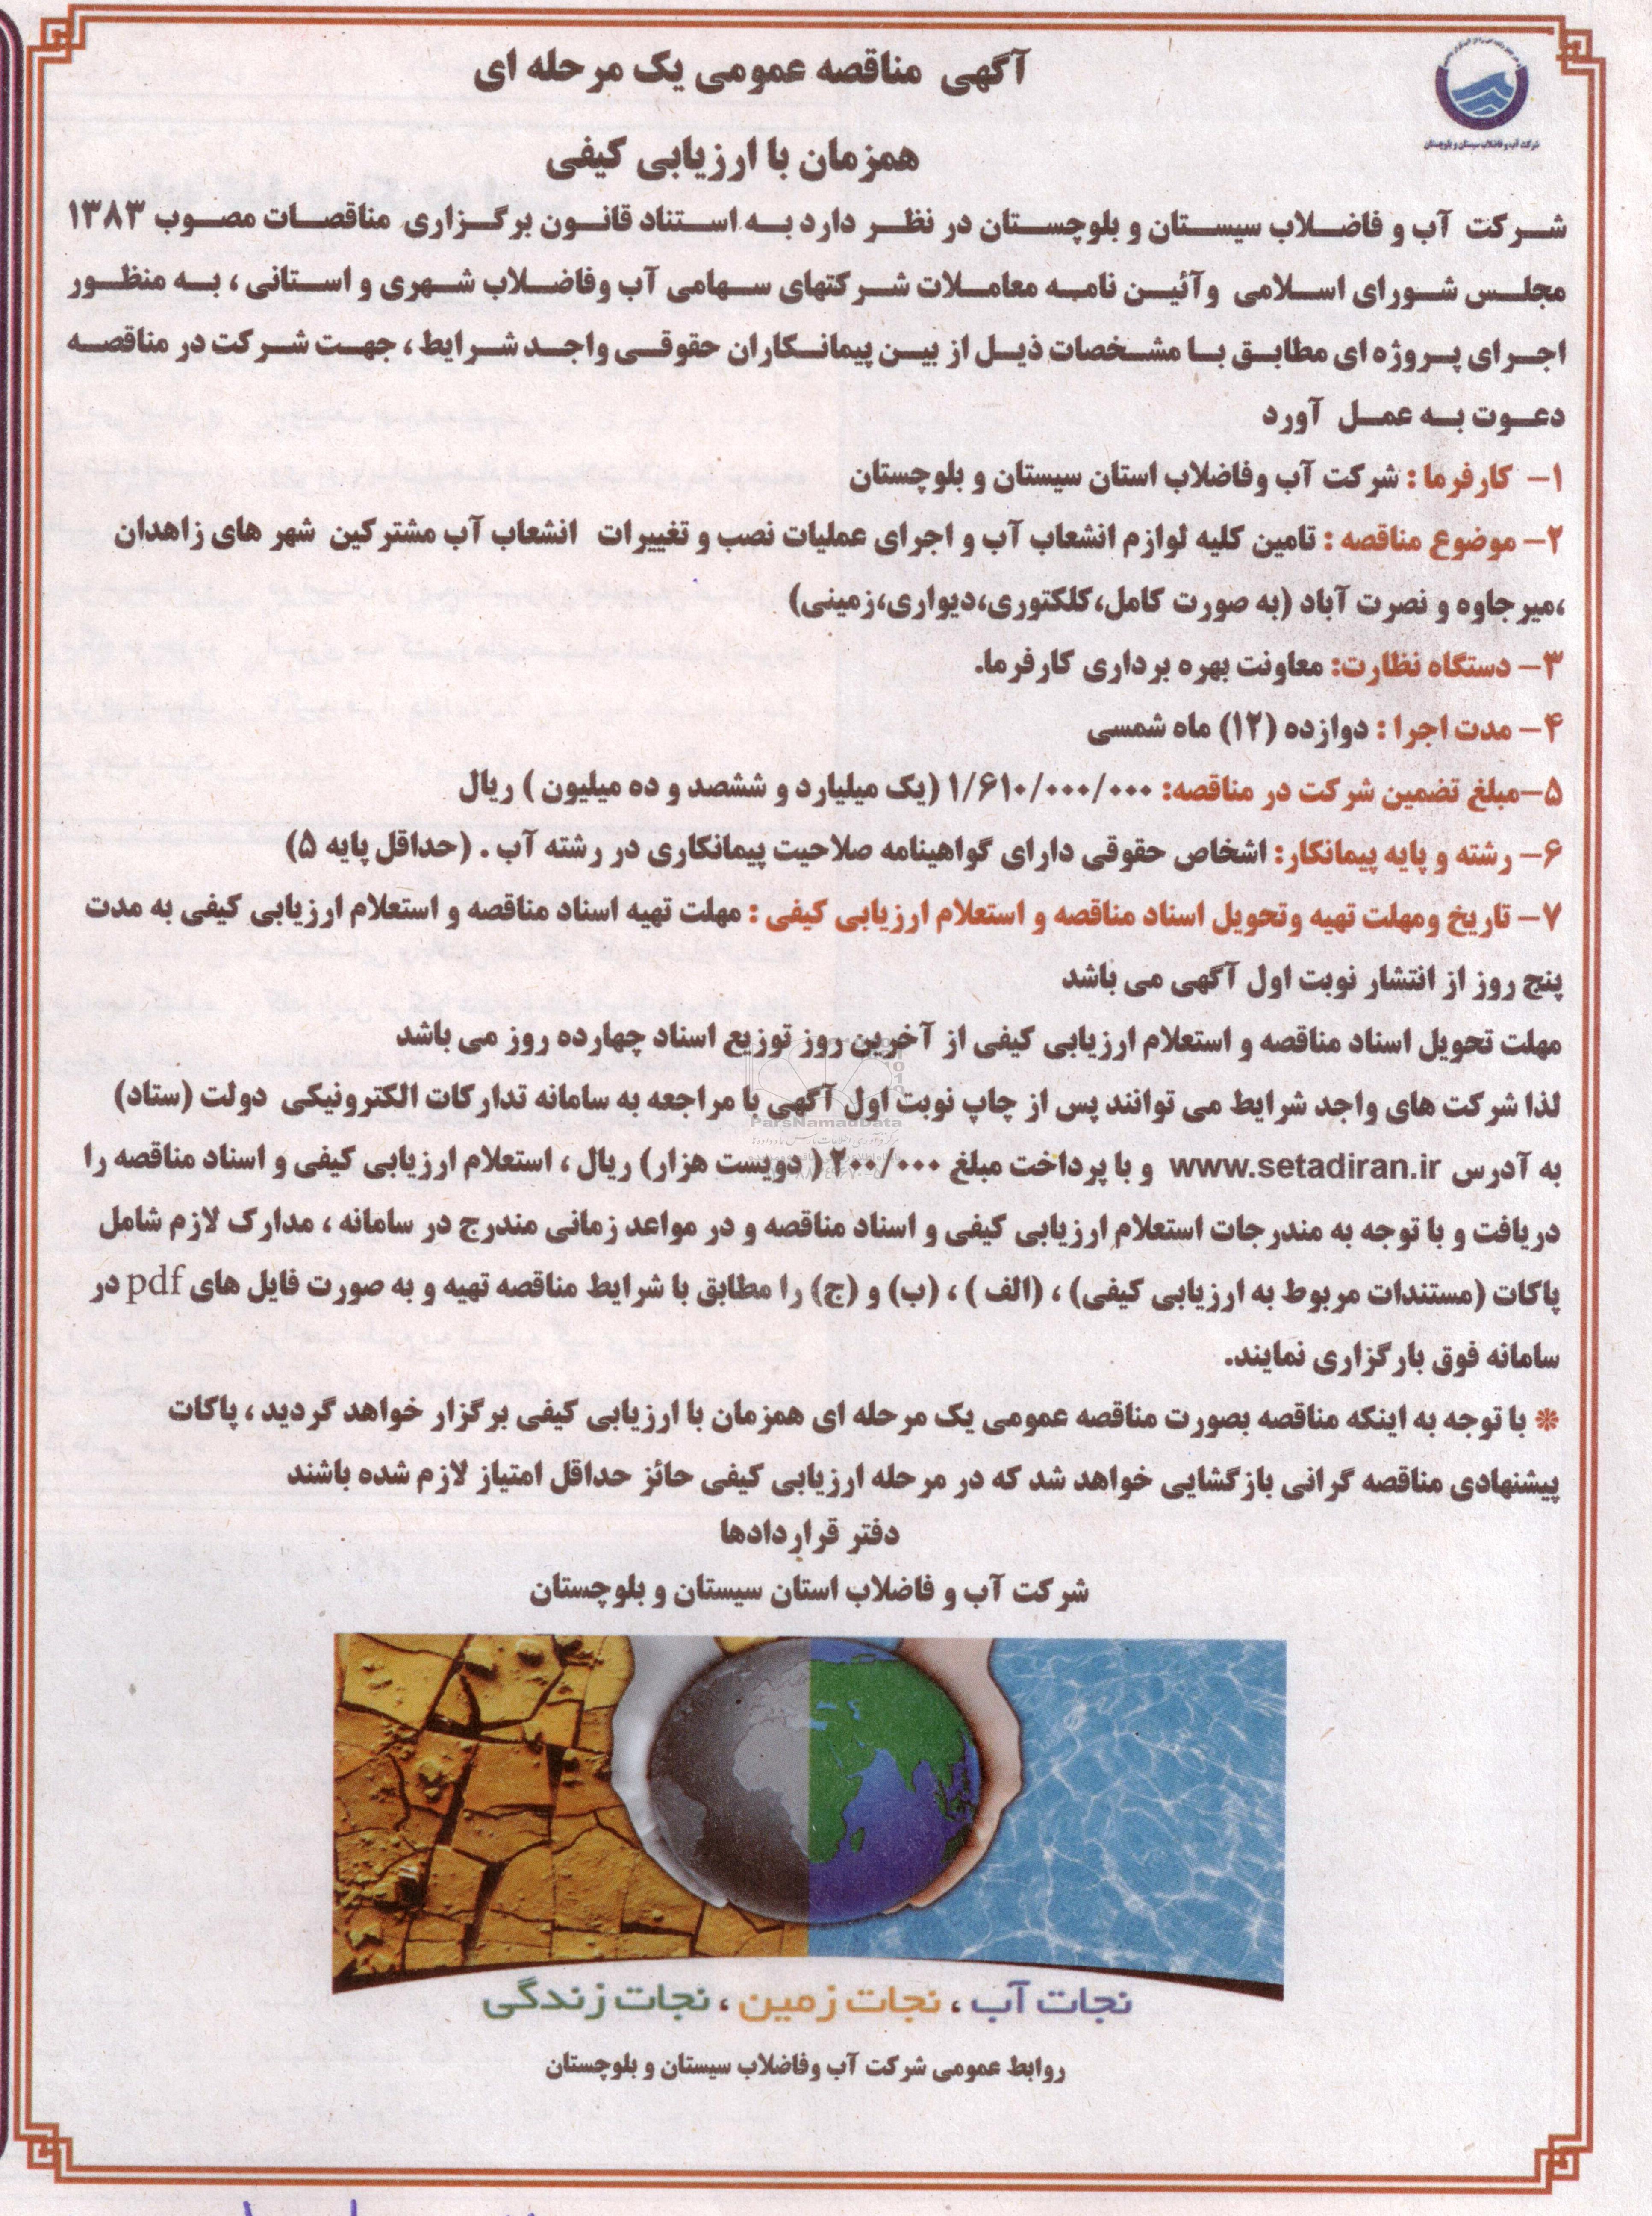 آگهی مناقصه عمومی یک مرحله ای
همزمان با ارزیابی کیفی
شرکت آب و فاضلاب سیستان و بلوچستان
شرکت آب و فاضلاب سیستان و بلوچستان در نظر دارد به استناد قانون برگزاری مناقصات مصوب ۱۳۸۳
مجلس شورای اسلامی وآئین نامه معاملات شرکتهای سهامی آب وفاضلاب شهری و استانی ، به منظور
اجرای پروژه ای مطابق با مشخصات ذیل از بین پیمانکاران حقوقی واجد شرایط ، جهت شرکت در مناقصه
دعوت به عمل آورد
۱- کارفرما : شرکت آب وفاضلاب استان سیستان و بلوچستان
۲- موضوع مناقصه : تامین کلیه لوازم انشعاب آب و اجرای عملیات نصب و تغییرات انشعاب آب مشترکین شهر های زاهدان
،میرجاوه و نصرت آباد (به صورت کامل،کلکتوری،دیواری،زمینی)
۳- دستگاه نظارت: معاونت بهره برداری کارفرما.
۴- مدت اجرا : دوازده (۱۲) ماه شمسی
۵-مبلغ تضمین شرکت در مناقصه: ۱/۶۱۰/۰۰۰/۰۰۰ (یک میلیارد و ششصد و ده میلیون ) ریال
۶- رشته و پایه پیمانکار: اشخاص حقوقی دارای گواهینامه صلاحیت پیمانکاری در رشته آب . (حداقل پایه ۵)
۷- تاریخ ومهلت تهیه وتحویل اسناد مناقصه و استعلام ارزیابی کیفی : مهلت تهیه اسناد مناقصه و استعلام ارزیابی کیفی به مدت
پنج روز از انتشار نوبت اول آگهی می باشد
مهلت تحویل اسناد مناقصه و استعلام ارزیابی کیفی از آخرین روز توزیع اسناد چهارده روز می باشد
لذا شرکت های واجد شرایط می توانند پس از چاپ نوبت اول آگهی با مراجعه به سامانه تدارکات الکترونیکی دولت (ستاد)
ParsNamadData
به آدرس www.setadiran.ir و با پرداخت مبلغ ۲۰۰/۰۰۰ ( دویست هزار) ریال ، استعلام ارزیابی کیفی و اسناد مناقصه را
دریافت و با توجه به مندرجات استعلام ارزیابی کیفی و اسناد مناقصه و در مواعد زمانی مندرج در سامانه ، مدارک لازم شامل
پاکات (مستندات مربوط به ارزیابی کیفی) ، (الف ) ، (ب) و (ج) را مطابق با شرایط مناقصه تهیه و به صورت فایل های pdf در
سامانه فوق بارگزاری نمایند.
* با توجه به اینکه مناقصه بصورت مناقصه عمومی یک مرحله ای همزمان با ارزیابی کیفی برگزار خواهد گردید ، پاکات
پیشنهادی مناقصه گرانی بازگشایی خواهد شد که در مرحله ارزیابی کیفی حائز حداقل امتیاز لازم شده باشند
دفتر قراردادها
شرکت آب و فاضلاب استان سیستان و بلوچستان
نجات آب ، نجات زمین ، نجات زندگی
روابط عمومی شرکت آب وفاضلاب سیستان و بلوچستان